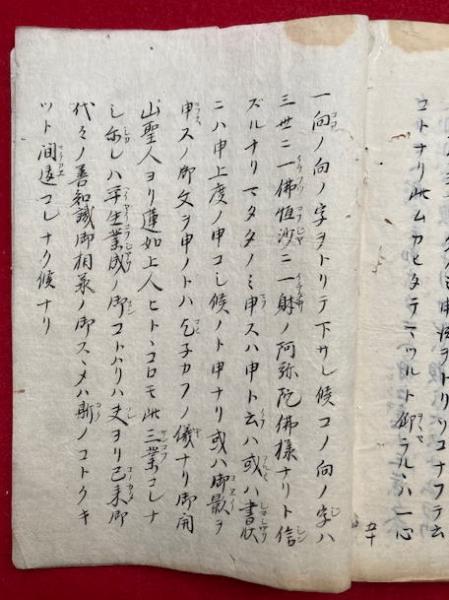 コトナリ此ムカヒタテマツルト仰ラルヽハ一心
一向ノ向ノ字ヲトリテ下サレ候コノ向ノ字ハ
三世ニ一佛恒沙ニ一躰ノ阿弥陀佛様ナリト信
ズルナリマタタノミ申スハ申ト云ハ或ハ書状
ニハ申上度ノ申コレ候ノト申ナリ或ハ御影ヲ
申スノ御文ヲ申ノトハ乞子カフノ儀ナリ御開
山聖人ヨリ蓮如上人ヒトヽコロモ此三業コレナ
シ尓レハ平生業成ノ御コトハリハ夫ヨリ已来御
代々ノ善知識御相承ノ御スヽメハ斯ノコトクキ
ツト間違コレナク候ナリ